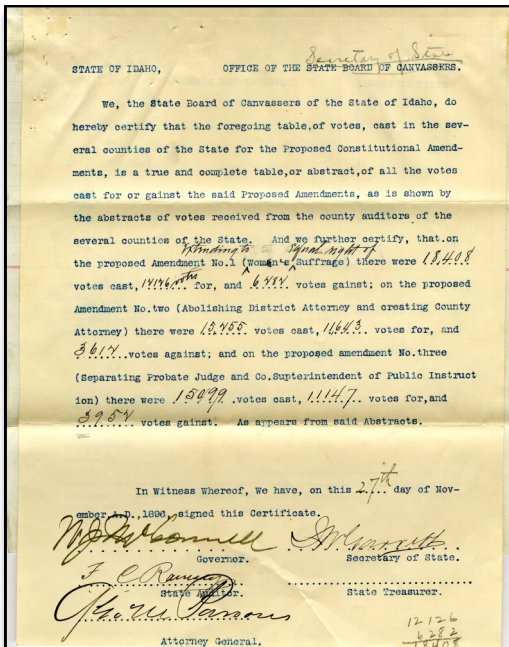 Secretary of State
STATE OF IDAHO, OFFICE OF THE STATE BOARD OF CANVASSERS.
We, the State Board of Canvassers of the State of Idaho, do
hereby certify that the foregoing table,of votes, cast in the sev-
eral counties of the State for the Proposed Constitutional Amend-
ments, is a true and complete table,or abstract,of all the votes
cast for or gainst the said Proposed Amendments, as is shown by
the abstracts of votes received from the county auditors of the
several counties of the State. And we further certify, that.on
extending to equal right of
the proposed Amendment No.1 (Women's Suffrage) there were 18,408
votes cast, 12126 votes for, and 6,282 votes gainst; on the proposed
Amendment No.two (Abolishing District Attorney and creating County
Attorney) there were 15,255 votes cast, 11,643 votes for, and
3612 votes against; and on the proposed amendment No.three
(Separating Probate Judge and Co.Suptertintendent of Public Instruct
ion) there were 15099 .votes cast, 11147.. votes for,and
3952 votes gainst. As appears from said Abstracts.
In Witness Whereof, We have, on this 27th day of Nov-
ember A.D.,1896, signed this Certificate.
W. J. McConnell
Governor. Secretary of State.
F. C. Ramsey
State Auditor. State Treasurer.
George M. Parsons
Attorney General.
12126
6282
18408